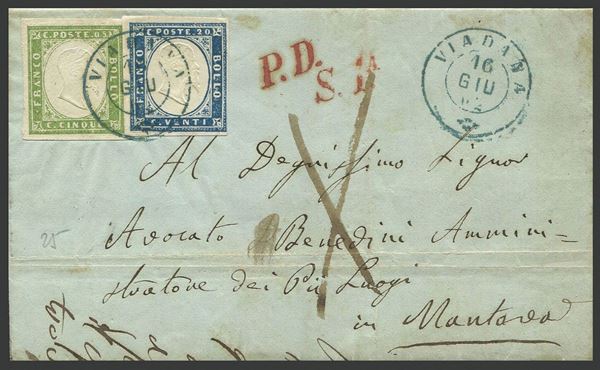 C. POSTE. 05
FRANCO
BOLLO
C. CINQUE
C. POSTE. 20
FRANCO
BOLLO
C. VENTI
VIADANA
P.D.
S.
VIADANA
16
GIU
Al Degnissimo Signor
Avocato Benedini Ammini=
stratore dei Pii Luoghi
in Mantova
25